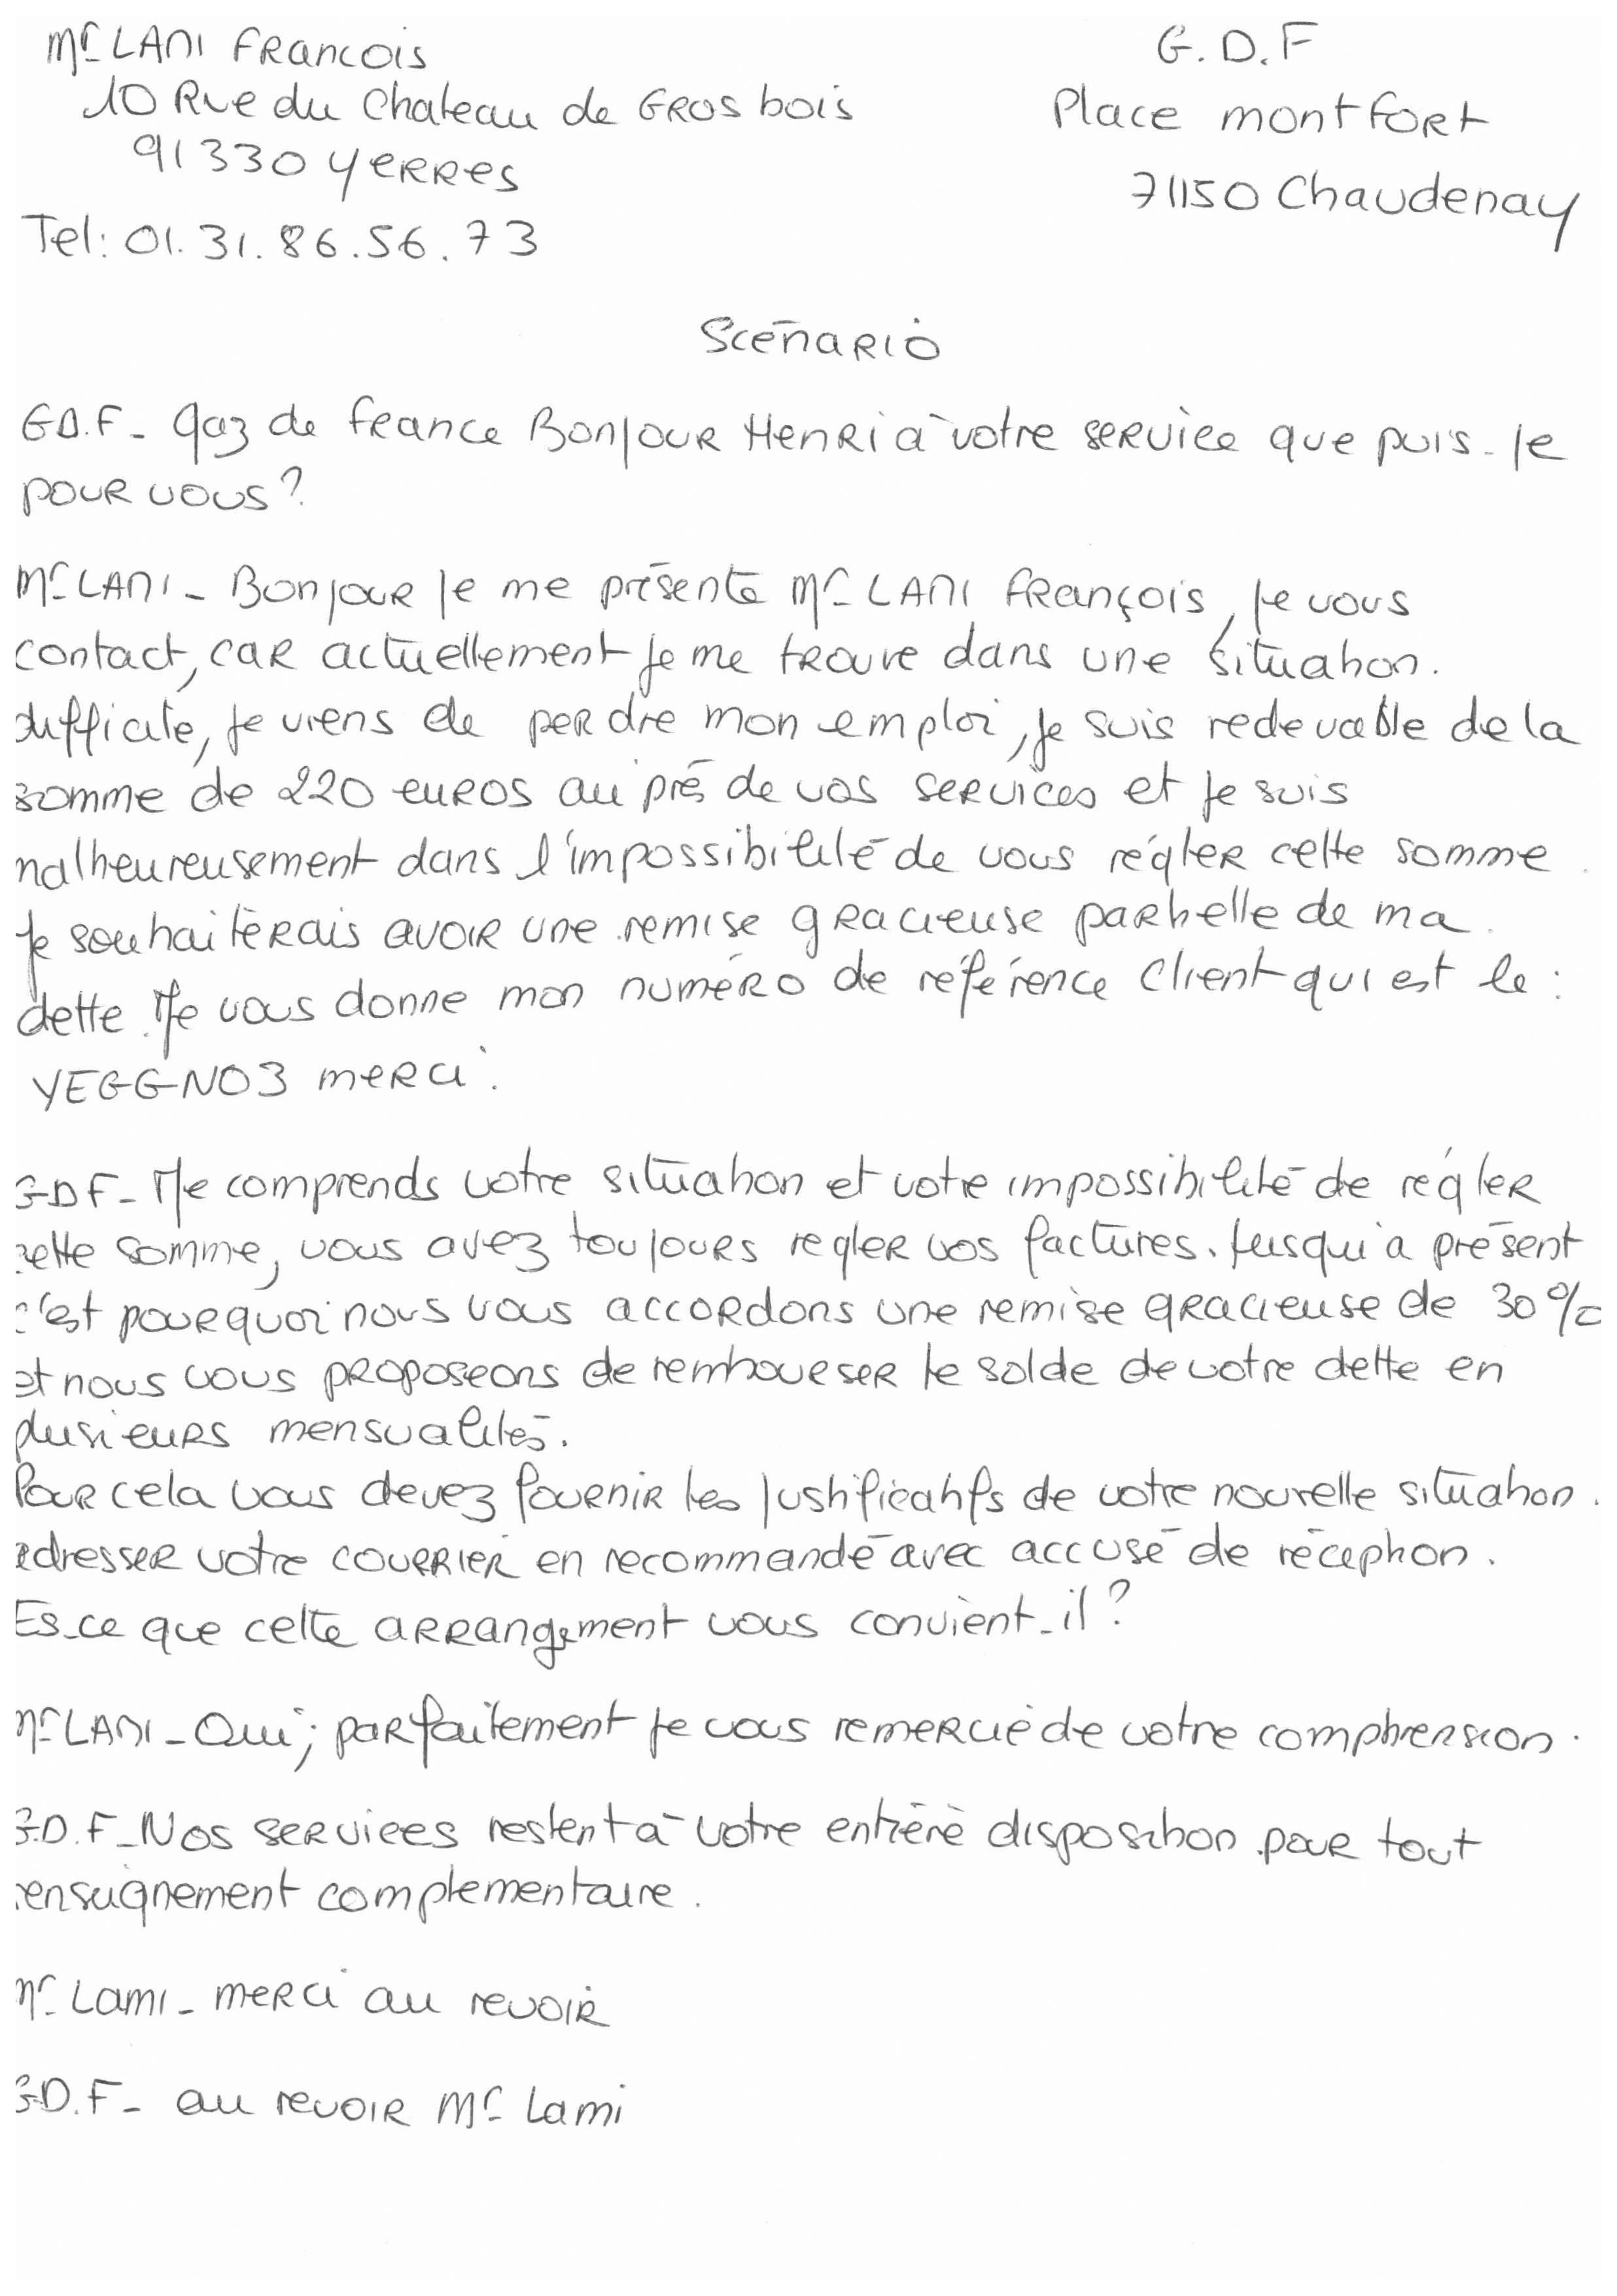 Mr LAMI Francois
10 Rue du Chateau de GROS bois
91330 YERRES
Tel: 01.31.86.56.73
G.D.F
Place montfort
71150 Chaudenay
Scénario
G.D.F - gaz de france Bonjour Henri à votre service que puis-je
pour vous?
Mr LAMI - Bonjour je me présente Mr LAMI François, je vous
contact, car actuellement je me trouve dans une situation.
difficile, je viens de perdre mon emploi, je suis redevable de la
somme de 220 euros au pré de vos services et je suis
malheureusement dans l'impossibilité de vous régler cette somme.
Je souhaiterais avoir une remise gracieuse partielle de ma.
dette. Je vous donne mon numéro de référence client qui est le:
YEGGNO3 merci.
GDF - Je comprends votre situation et votre impossibilité de régler
cette somme, vous avez toujours regler vos factures. jusqu'à présent
c'est pourquoi nous vous accordons une remise gracieuse de 30%
et nous vous proposeons de rembourser le solde de votre dette en
plusieurs mensualités.
Pour cela vous devez fournir les justificatifs de votre nouvelle situation.
adresser votre courrier en recommandé avec accusé de réception.
Es-ce que cette arrangement vous convient-il?
Mr LAMI - Oui; parfaitement je vous remercie de votre comphrension.
G.D.F - Nos services restent à votre entière disposition pour tout
renseignement complementaire.
Mr Lami - merci au revoir
G.D.F - au revoir Mr Lami